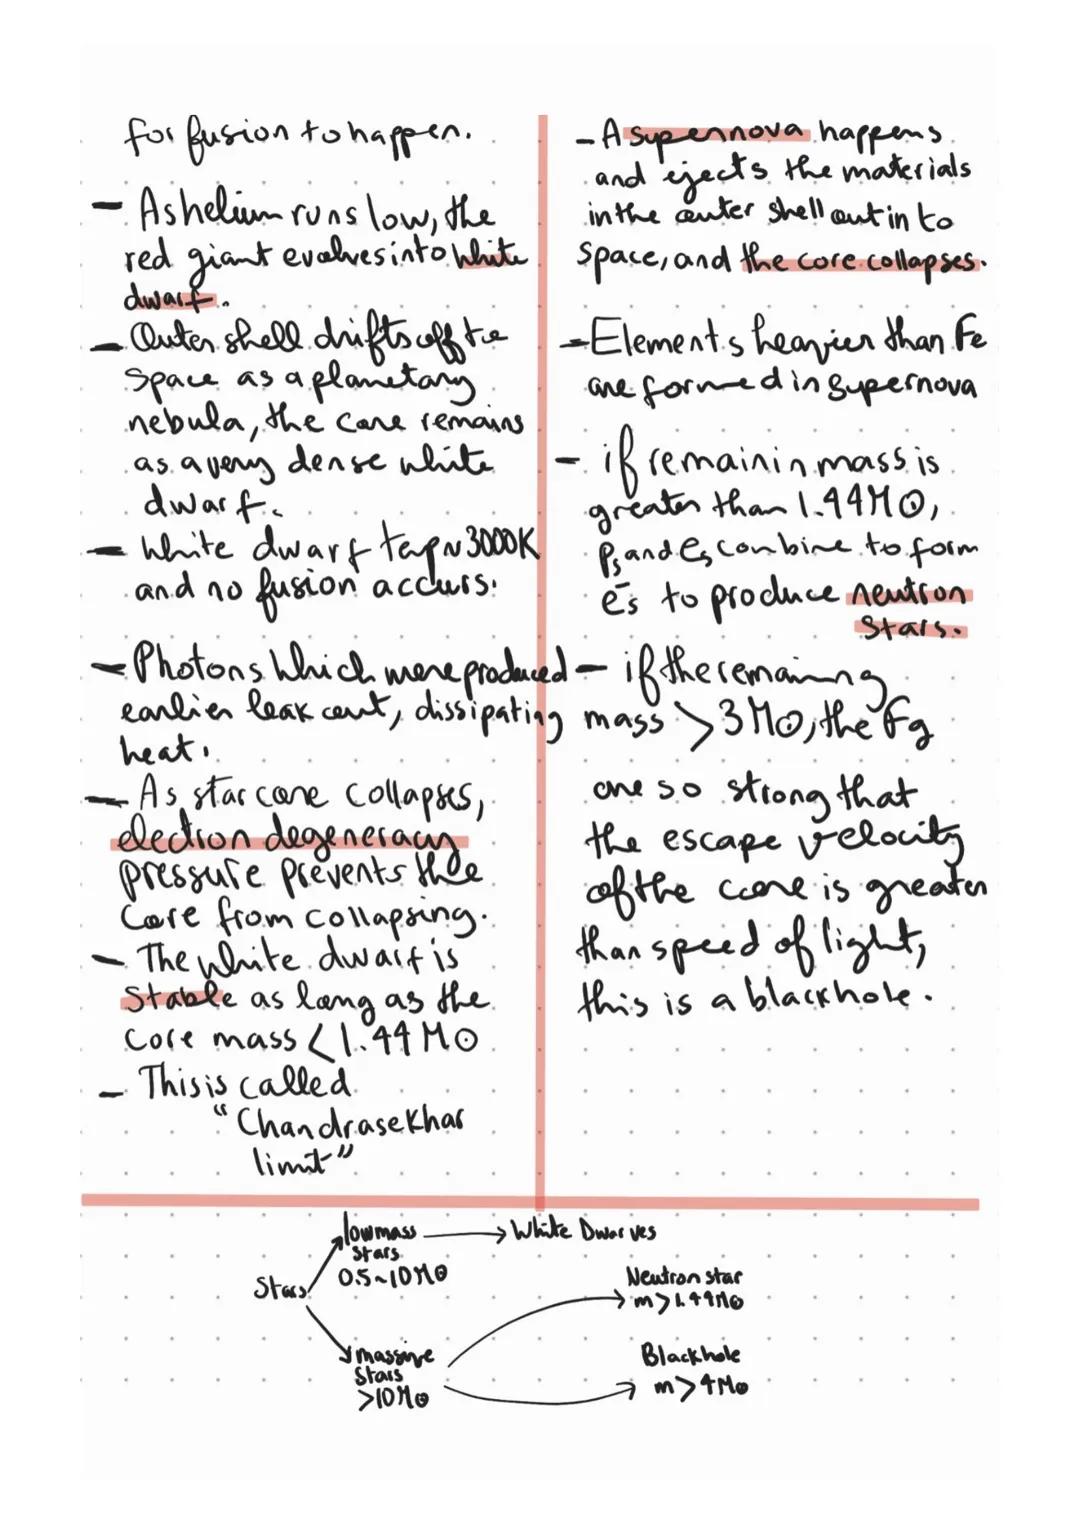 for fusion to happen.
- As helium runs low, the
red giant evolves into white
dwarf.
- Outer shell drifts off the
space as a planetary
nebula, the core remains
as a very dense white
dwarf.
- White dwarf temp ~ 3000K
and no fusion accurs.
- Photons which were produced
earlier leak out, dissipating
heat.
- As star core collapses,
electron degeneracy
pressure prevents the
core from collapsing.
- The white dwarf is
stable as long as the
core mass < 1.44 M⊙
- This is called
"Chandrasekhar
limit"
- A supernova happens
and ejects the materials
in the outer shell out in to
space, and the core collapses.
- Elements heavier than Fe
are formed in supernova
- if remainin mass is
greater than 1.44M⊙,
Ps and es combine to form
es to produce neutron
stars.
- if the remaining
mass > 3M⊙, the Fg
are so strong that
the escape velocity
of the core is greater
than speed of light,
this is a blackhole.
Stars
low mass
stars
0.5~10M⊙
White Dwarves
massive
stars
>10M⊙
Neutron star
m>1.44M⊙
Blackhole
m>4M⊙